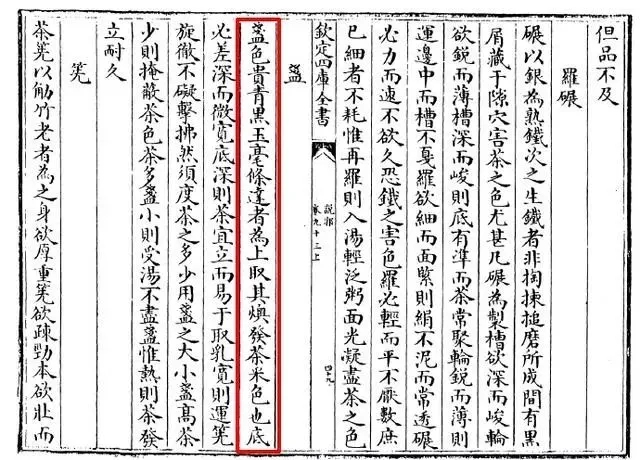 但品不及
羅碾
碾以銀為上熟鐵次之生鐵者非掏揀搥磨所成間有黑
屑藏于隙穴害茶之色尤甚凡碾為製槽欲深而峻輪
欲鋭而薄槽深而峻則底有準而茶常聚輪鋭而薄則
運邊中而槽不戛羅欲細而面緊則絹不泥而常透碾
必力而速不欲久恐鐵之害色羅必輕而平不厭數庶
已細者不耗惟再羅則入湯輕泛粥面光凝盡茶之色
欽定四庫全書
説郛
卷九十三上
四十九
盞
盞色貴青黑玉毫條達者為上取其燠發茶米色也底
必差深而微寛底深則茶宜立而易于取乳寛則運筅
旋徹不礙擊拂然須度茶之多少用盞之大小盞髙茶
少則掩蔽茶色茶多盞小則受湯不盡盞惟熱則茶發
立耐久
筅
茶筅以觔竹老者為之身欲厚重筅欲疎勁本欲壯而